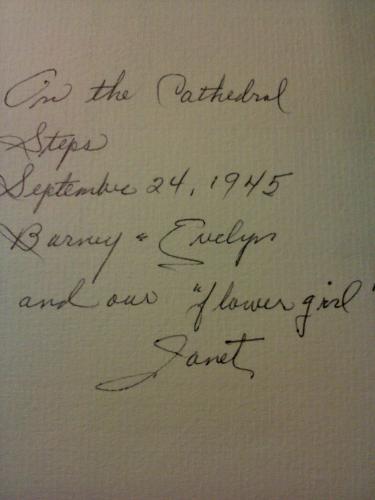 On the Cathedral
Steps
September 24, 1945
Barney & Evelyn
and our "flower girl"
Janet